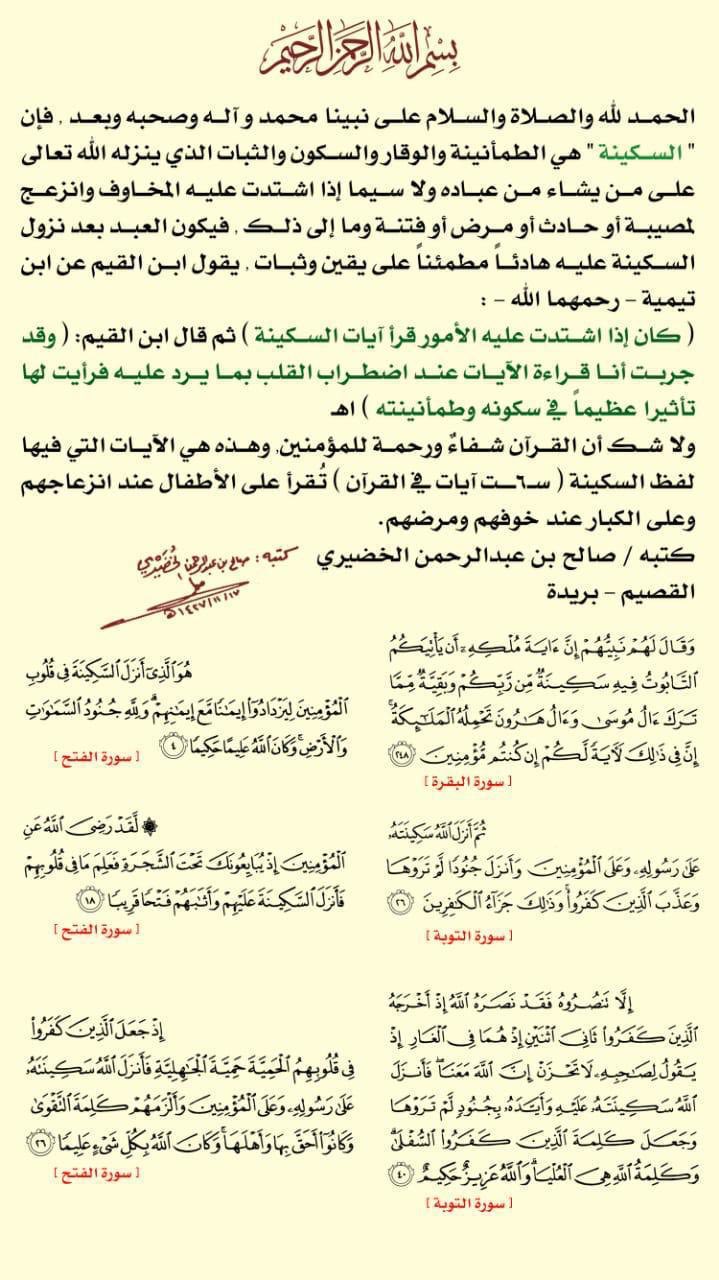 بِسْمِ اللَّهِ الرَّحْمَنِ الرَّحِيمِ
الحمد لله والصلاة والسلام على نبينا محمد وآله وصحبه وبعد , فإن
" السكينة " هي الطمأنينة والوقار والسكون والثبات الذي ينزله الله تعالى
على من يشاء من عباده ولا سيما إذا اشتدت عليه المخاوف وانزعج
لمصيبة أو حادث أو مرض أو فتنة وما إلى ذلك , فيكون العبد بعد نزول
السكينة عليه هادئاً مطمئناً على يقين وثبات , يقول ابن القيم عن ابن
تيمية – رحمهما الله – :
( كان إذا اشتدت عليه الأمور قرأ آيات السكينة ) ثم قال ابن القيم: ( وقد
جربت أنا قراءة الآيات عند اضطراب القلب بما يرد عليه فرأيت لها
تأثيرا عظيماً في سكونه وطمأنينته ) اهـ
ولا شك أن القرآن شفاءٌ ورحمة للمؤمنين, وهذه هي الآيات التي فيها
لفظ السكينة ( ست آيات في القرآن ) تُقرأ على الأطفال عند انزعاجهم
وعلى الكبار عند خوفهم ومرضهم.
كتبه / صالح بن عبدالرحمن الخضيري
القصيم – بريدة
كتبه : صالح بن عبدالرحمن الخضيري
١٤٣٧/١١/١٧هـ
وَقَالَ لَهُمْ نَبِيُّهُمْ إِنَّ ءَايَةَ مُلْكِهِۦٓ أَن يَأْتِيَكُمُ
ٱلتَّابُوتُ فِيهِ سَكِينَةٌ مِّن رَّبِّكُمْ وَبَقِيَّةٌ مِّمَّا
تَرَكَ ءَالُ مُوسَىٰ وَءَالُ هَٰرُونَ تَحْمِلُهُ ٱلْمَلَٰٓئِكَةُ ۚ
إِنَّ فِى ذَٰلِكَ لَءَايَةً لَّكُمْ إِن كُنتُم مُّؤْمِنِينَ ٢٤٨
[ سورة البقرة ]
هُوَ ٱلَّذِىٓ أَنزَلَ ٱلسَّكِينَةَ فِى قُلُوبِ
ٱلْمُؤْمِنِينَ لِيَزْدَادُوٓا۟ إِيمَٰنًا مَّعَ إِيمَٰنِهِمْ ۗ وَلِلَّهِ جُنُودُ ٱلسَّمَٰوَٰتِ
وَٱلْأَرْضِ ۚ وَكَانَ ٱللَّهُ عَلِيمًا حَكِيمًا ٤
[ سورة الفتح ]
ثُمَّ أَنزَلَ ٱللَّهُ سَكِينَتَهُۥ
عَلَىٰ رَسُولِهِۦ وَعَلَى ٱلْمُؤْمِنِينَ وَأَنزَلَ جُنُودًا لَّمْ تَرَوْهَا
وَعَذَّبَ ٱلَّذِينَ كَفَرُوا۟ ۚ وَذَٰلِكَ جَزَآءُ ٱلْكَٰفِرِينَ ٢٦
[ سورة التوبة ]
۞ لَّقَدْ رَضِىَ ٱللَّهُ عَنِ
ٱلْمُؤْمِنِينَ إِذْ يُبَايِعُونَكَ تَحْتَ ٱلشَّجَرَةِ فَعَلِمَ مَا فِى قُلُوبِهِمْ
فَأَنزَلَ ٱلسَّكِينَةَ عَلَيْهِمْ وَأَثَٰبَهُمْ فَتْحًا قَرِيبًا ١٨
[ سورة الفتح ]
إِلَّا تَنصُرُوهُ فَقَدْ نَصَرَهُ ٱللَّهُ إِذْ أَخْرَجَهُ
ٱلَّذِينَ كَفَرُوا۟ ثَانِىَ ٱثْنَيْنِ إِذْ هُمَا فِى ٱلْغَارِ إِذْ
يَقُولُ لِصَٰحِبِهِۦ لَا تَحْزَنْ إِنَّ ٱللَّهَ مَعَنَا ۖ فَأَنزَلَ
ٱللَّهُ سَكِينَتَهُۥ عَلَيْهِ وَأَيَّدَهُۥ بِجُنُودٍ لَّمْ تَرَوْهَا
وَجَعَلَ كَلِمَةَ ٱلَّذِينَ كَفَرُوا۟ ٱلسُّفْلَىٰ ۗ
وَكَلِمَةُ ٱللَّهِ هِىَ ٱلْعُلْيَا ۗ وَٱللَّهُ عَزِيزٌ حَكِيمٌ ٤٠
[ سورة التوبة ]
إِذْ جَعَلَ ٱلَّذِينَ كَفَرُوا۟
فِى قُلُوبِهِمُ ٱلْحَمِيَّةَ حَمِيَّةَ ٱلْجَٰهِلِيَّةِ فَأَنزَلَ ٱللَّهُ سَكِينَتَهُۥ
عَلَىٰ رَسُولِهِۦ وَعَلَى ٱلْمُؤْمِنِينَ وَأَلْزَمَهُمْ كَلِمَةَ ٱلتَّقْوَىٰ
وَكَانُوٓا۟ أَحَقَّ بِهَا وَأَهْلَهَا ۚ وَكَانَ ٱللَّهُ بِكُلِّ شَىْءٍ عَلِيمًا ٢٦
[ سورة الفتح ]